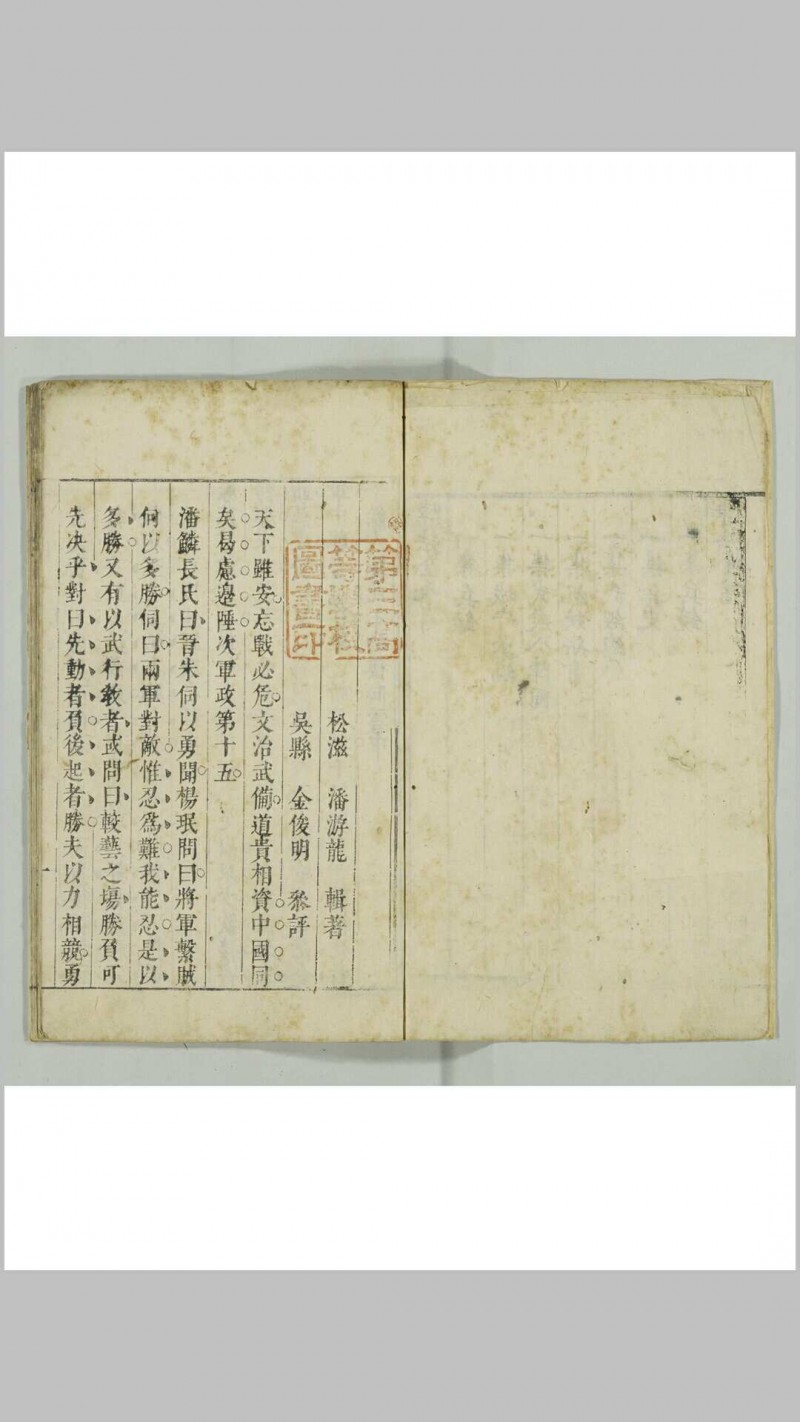 松滋 潘游龍 輯著
吳縣 金俊明 叅評
天下雖安忘戰必危文治武備道貴相資中國同
矣曷慮邊陲次軍政第十五
潘鱗長氏曰晉朱伺以勇聞楊珉問曰將軍繫賊
何以多勝伺曰兩軍對敵惟忍爲難我能忍是以
多勝又有以武行教者或問曰較藝之塲勝負可
先决乎對曰先動者負後起者勝夫以力相競勇
一
第三高
等學校
圖書印